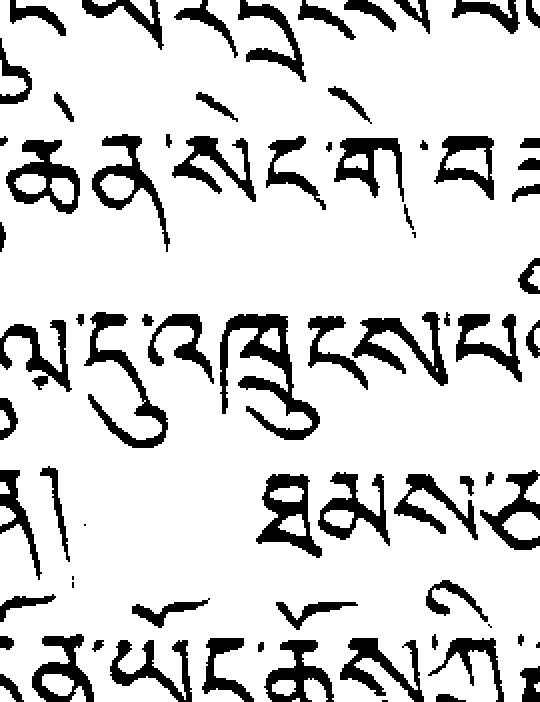 ཆེན་སེང་གེ་བ
ལ་དུ་འཁྲུངས་པ
ན། ཐམས་ཅ
ན་ཡོང་ཆོས་ཀྱི་